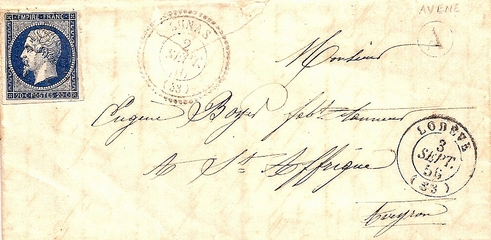 AVENE
A
EMPIRE FRANC
20 C POSTES 20 C
LUNAS
2
SEPT.
(33)
Monsieur
Eugène Boyer fabt tanneur
A St Affrique
Aveyron
LODEVE
3
SEPT.
56
(33)